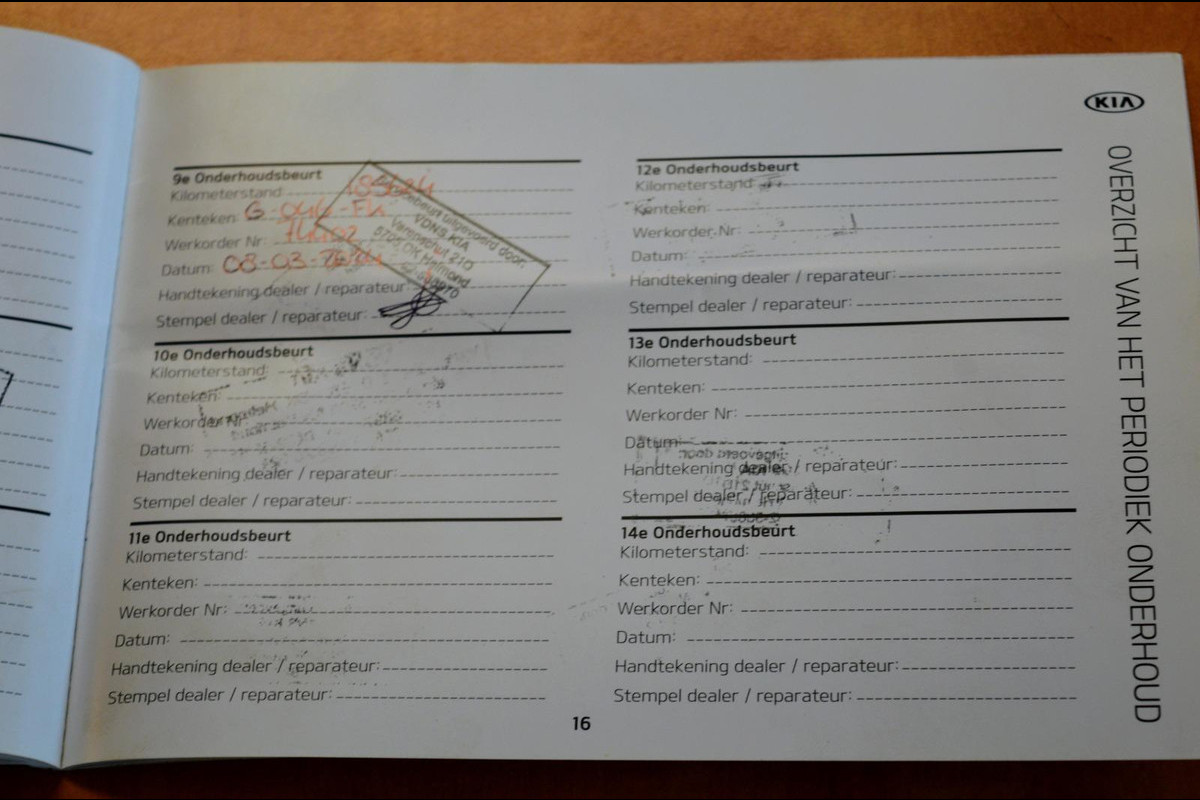 KIA
OVERZICHT VAN HET PERIODIEK ONDERHOUD
9e Onderhoudsbeurt
Kilometerstand:
Kenteken: G-046-
Werkorder Nr:
Datum: 08-03-
Handtekening dealer / reparateur:
Stempel dealer / reparateur:
uitgevoerd door:
VDNS KIA
210
Helmond
10e Onderhoudsbeurt
Kilometerstand:
Kenteken:
Werkorder Nr:
Datum:
Handtekening dealer / reparateur:
Stempel dealer / reparateur:
11e Onderhoudsbeurt
Kilometerstand:
Kenteken:
Werkorder Nr:
Datum:
Handtekening dealer / reparateur:
Stempel dealer / reparateur:
12e Onderhoudsbeurt
Kilometerstand
Kenteken:
Werkorder Nr:
Datum:
Handtekening dealer / reparateur:
Stempel dealer / reparateur:
13e Onderhoudsbeurt
Kilometerstand:
Kenteken:
Werkorder Nr:
Datum:
Handtekening dealer / reparateur:
Stempel dealer / reparateur:
14e Onderhoudsbeurt
Kilometerstand:
Kenteken:
Werkorder Nr:
Datum:
Handtekening dealer / reparateur:
Stempel dealer / reparateur:
16